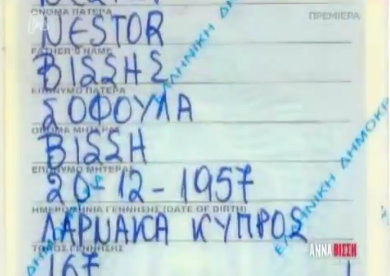 ΟΝΟΜΑ ΠΑΤΕΡΑ
ΠΡΕΜΙΕΡΑ
NESTOR
FATHER'S NAME
ΒΙΣΣΗΣ
ΕΠΩΝΥΜΟ ΠΑΤΕΡΑ
ΣΟΦΟΥΛΑ
ΟΝΟΜΑ ΜΗΤΕΡΑΣ
ΒΙΣΣΗ
ΕΠΩΝΥΜΟ ΜΗΤΕΡΑΣ
20-12-1957
ΗΜΕΡΟΜΗΝΙΑ ΓΕΝΝΗΣΗΣ (DATE OF BIRTH)
ΛΑΡΝΑΚΑ ΚΥΠΡΟΣ
ΤΟΠΟΣ ΓΕΝΝΗΣΗΣ
167
ΕΛΛΗΝΙΚΗ ΔΗΜΟΚ
ΕΛΛΗΝΙΚΗ ΔΗΜΟ
ΑΝΝΑ ΒΙΣΣΗ